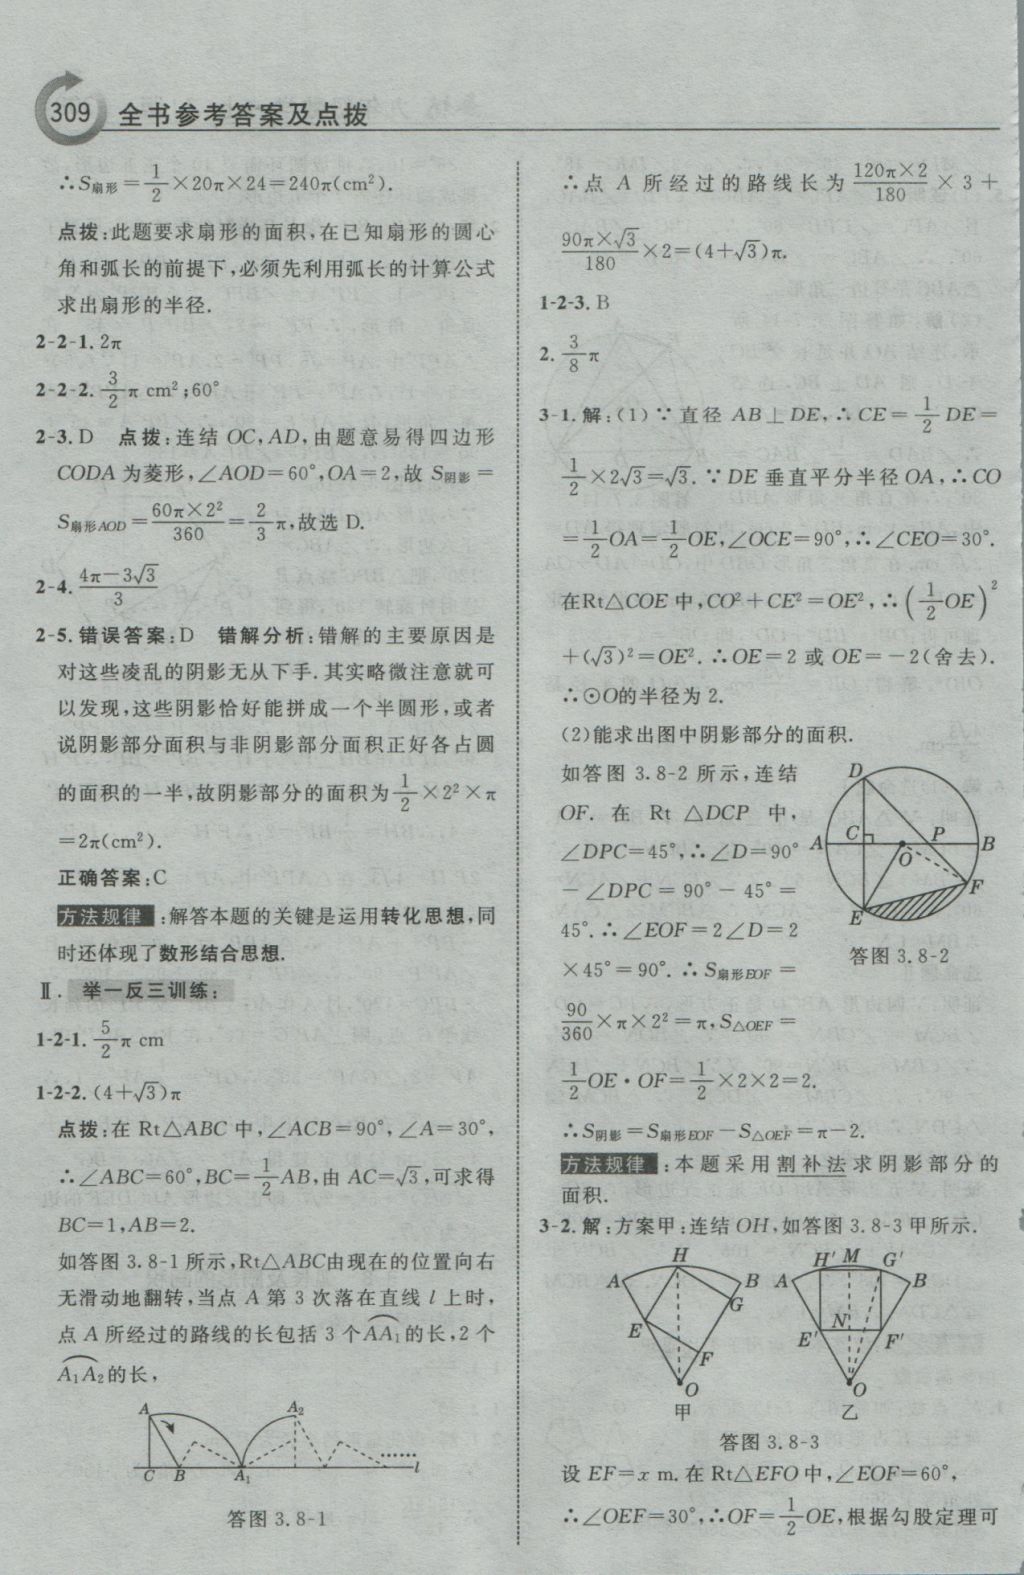 309 全书参考答案及点拨
∴S扇形=1/2×20π×24=240π(cm²).
点拨:此题要求扇形的面积,在已知扇形的圆心
角和弧长的前提下,必须先利用弧长的计算公式
求出扇形的半径.
2-2-1. 2π
2-2-2. 3/2π cm²;60°
2-3. D 点拨:连结 OC,AD,由题意易得四边形
CODA 为菱形,∠AOD=60°,OA=2,故 S阴影=
S扇形AOD=60π×2²/360=2/3π,故选 D.
2-4. (4π-3√3)/3
2-5. 错误答案:D 错解分析:错解的主要原因是
对这些凌乱的阴影无从下手.其实略微注意就可
以发现,这些阴影恰好能拼成一个半圆形,或者
说阴影部分面积与非阴影部分面积正好各占圆
的面积的一半,故阴影部分的面积为1/2×2²×π
=2π(cm²).
正确答案:C
方法规律:解答本题的关键是运用转化思想,同
时还体现了数形结合思想.
Ⅱ. 举一反三训练:
1-2-1. 5/2π cm
1-2-2. (4+√3)π
点拨:在 Rt△ABC 中,∠ACB=90°,∠A=30°,
∴∠ABC=60°,BC=1/2AB,由 AC=√3,可求得
BC=1,AB=2.
如答图 3.8-1 所示,Rt△ABC由现在的位置向右
无滑动地翻转,当点 A 第 3 次落在直线 l 上时,
点 A 所经过的路线的长包括 3 个A͡A₁的长,2 个
A₁͡A₂的长,
A A₂
C B A₁ …… l
答图 3.8-1
∴点 A 所经过的路线长为 120π×2/180 ×3+
90π×√3/180×2=(4+√3)π.
1-2-3. B
2. 3/8π
3-1. 解:(1)∵直径 AB⊥DE,∴CE=1/2DE=
1/2×2√3=√3.∵DE 垂直平分半径 OA,∴CO
=1/2OA=1/2OE,∠OCE=90°,∴∠CEO=30°.
在Rt△COE 中,CO²+CE²=OE²,∴(1/2OE)²
+(√3)²=OE².∴OE=2 或 OE=-2(舍去).
∴⊙O的半径为 2.
(2)能求出图中阴影部分的面积.
如答图 3.8-2 所示,连结
OF. 在 Rt △DCP 中,
∠DPC=45°,∴∠D=90°
-∠DPC=90°-45°=
45°.∴∠EOF=2∠D=2
×45°=90°.∴S扇形EOF=
90/360×π×2²=π,S△OEF=
1/2OE·OF=1/2×2×2=2.
D
A C O P B
E F
答图 3.8-2
∴S阴影=S扇形EOF-S△OEF=π-2.
方法规律:本题采用割补法求阴影部分的
面积.
3-2. 解:方案甲:连结 OH,如答图 3.8-3 甲所示.
H
A B
G
E
F
O
甲
H′ M G′
A B
N
E′ F′
O
乙
答图 3.8-3
设 EF=x m.在 Rt△EFO 中,∠EOF=60°,
∴∠OEF=30°,∴OF=1/2OE,根据勾股定理可